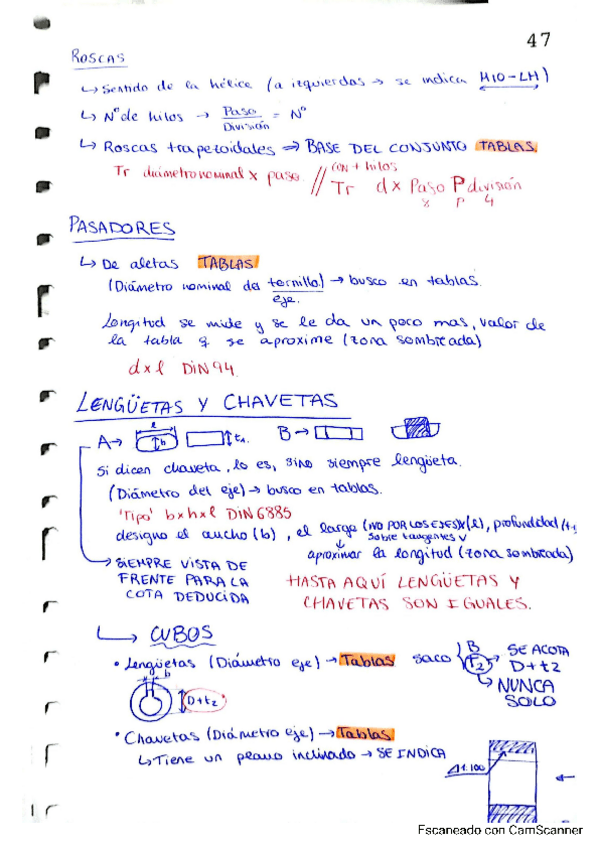 47
ROSCAS
↳ Sentido de la hélice (a izquierdas → se indica M10-LH)
↳ Nº de hilos → Paso/División = Nº
↳ Roscas trapezoidales ⇒ BASE DEL CONJUNTO TABLAS
Tr diámetro nominal x paso // con + hilos Tr d x Paso P división
8 P 4
PASADORES
↳ De aletas TABLAS
(Diámetro nominal del tornillo/eje.) → busco en tablas.
Longitud se mide y se le da un poco mas, valor de
la tabla q se aproxime (zona sombreada)
d x l DIN 94
LENGÜETAS Y CHAVETAS
A → l b t1 B →
Si dicen chaveta, lo es, sino siempre lengüeta.
(Diámetro del eje) → busco en tablas.
'Tipo' b x h x l DIN 6885
designo el ancho (b), el largo (NO POR LOS EJES) (l), profundidad (t1
sobre tangentes
aproximar la longitud (zona sombreada)
→ SIEMPRE VISTA DE
FRENTE PARA LA
COTA DEDUCIDA
HASTA AQUÍ LENGÜETAS Y
CHAVETAS SON IGUALES.
↳ CUBOS
• Lengüetas (Diámetro eje) → Tablas saco B t2 → SE ACOTA
D+t2
↳ NUNCA
SOLO
b
D+t2
• Chavetas (Diámetro eje) → Tablas
↳ Tiene un plano inclinado → SE INDICA
1:100
Escaneado con CamScanner